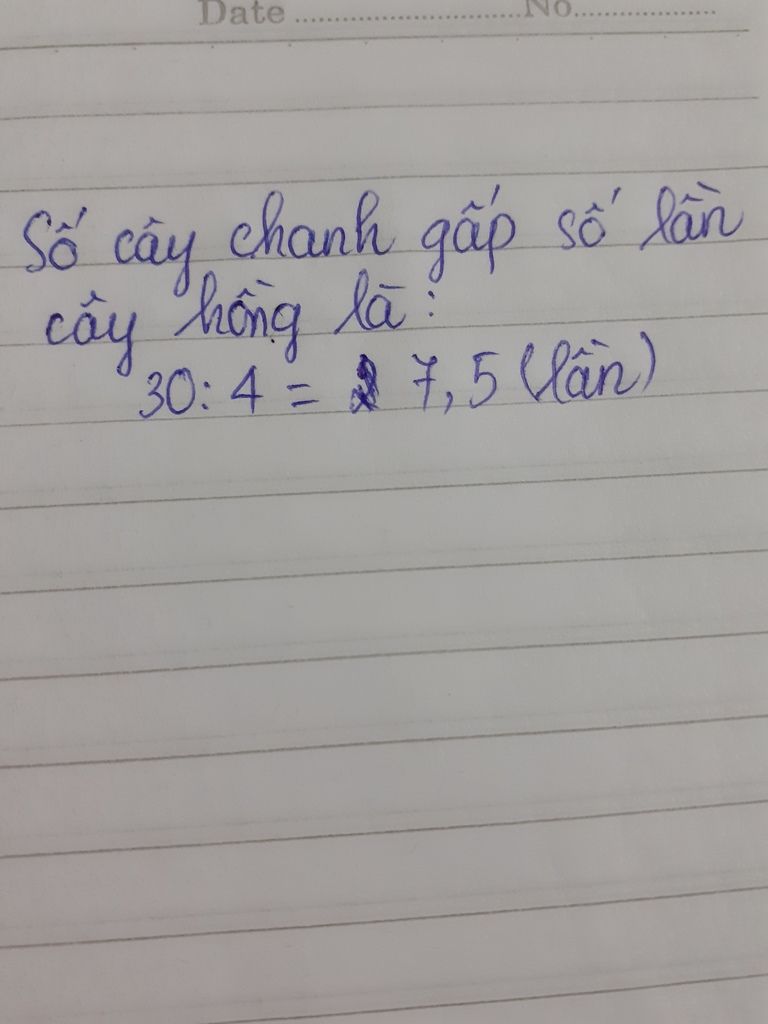 Date ........................... No...................
Số cây chanh gấp số lần
cây hồng là:
30: 4 = 7,5 (lần)